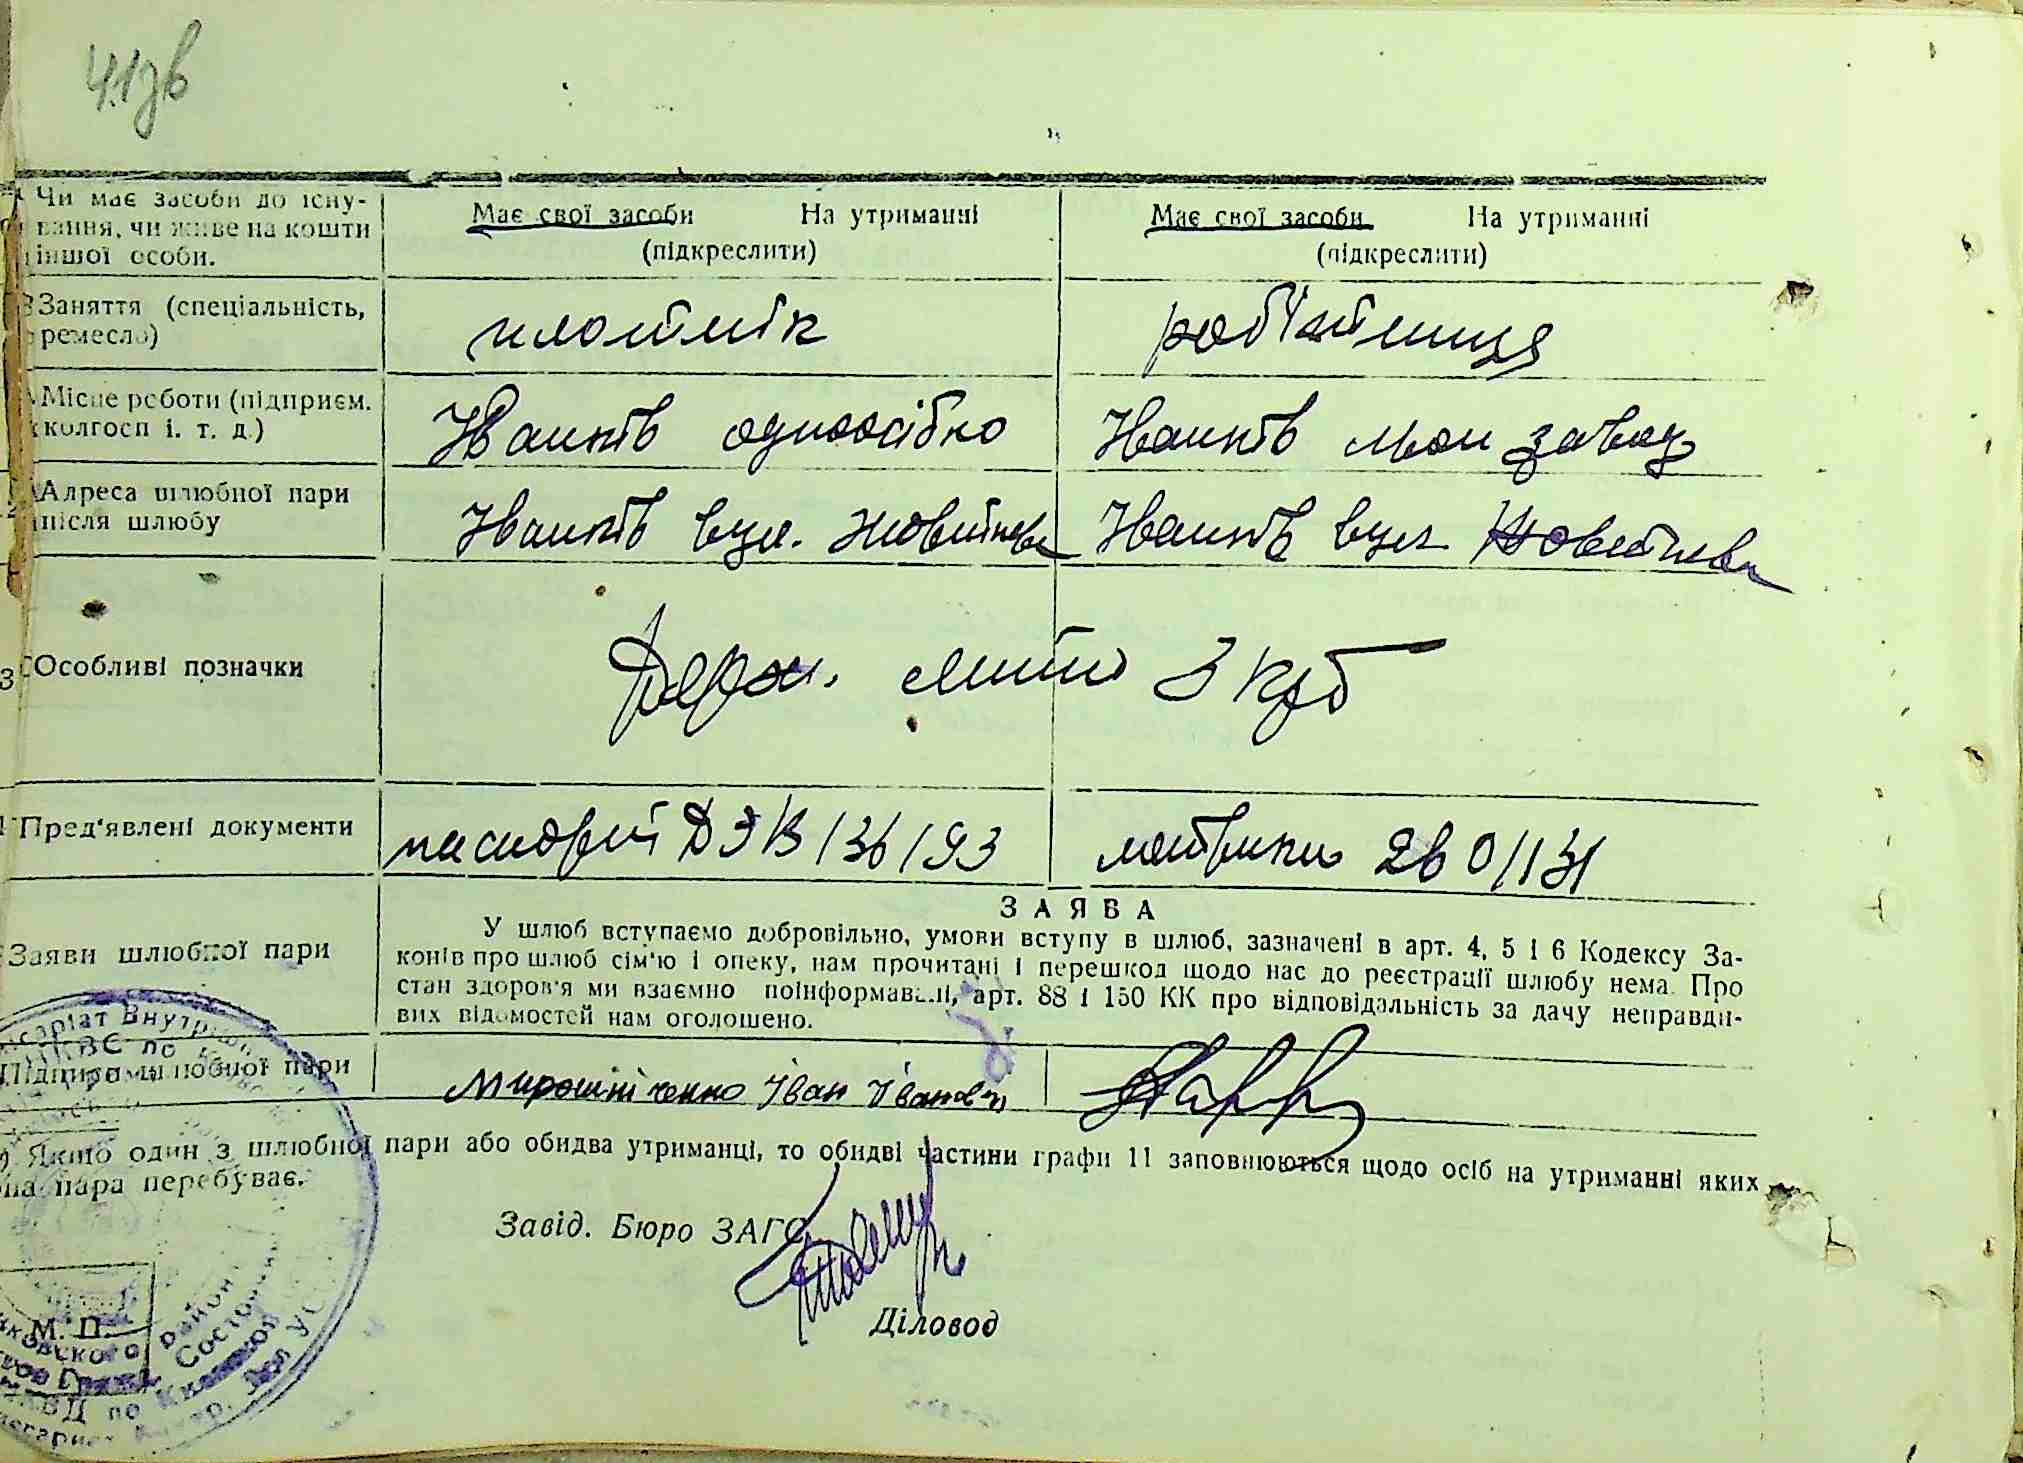 41зв
Чи має засоби до існу-
вання, чи живе на кошти
іншої особи.
Має свої засоби На утриманні
(підкреслити)
Має свої засоби На утриманні
(підкреслити)
Заняття (спеціальність,
ремесло)
плотнік
робітниця
Місце роботи (підприєм.
колгосп і. т. д.)
Іванків одноосібно
Іванків завод
Адреса шлюбної пари
після шлюбу
Іванків вул. Жовтнева
Іванків вул Жовтнева
Особливі позначки
Держ. мито 3 крб
Пред'явлені документи
паспорт
метрика
ЗАЯВА
Заяви шлюбної пари
У шлюб вступаємо добровільно, умови вступу в шлюб, зазначені в арт. 4, 5 і 6 Кодексу За-
конів про шлюб сім'ю і опеку, нам прочитані і перешкод щодо нас до реєстрації шлюбу нема. Про
стан здоров'я ми взаємно поінформавалі, арт. 88 і 150 КК про відповідальність за дачу неправди-
вих відомостей нам оголошено.
Підписи шлюбної пари
Мирошніченко Іван Іванов
Якщо один з шлюбної пари або обидва утриманці, то обидві частини графи 11 заповнюються щодо осіб на утриманні яких
пара перебуває.
Завід. Бюро ЗАГС
Діловод
М. П.